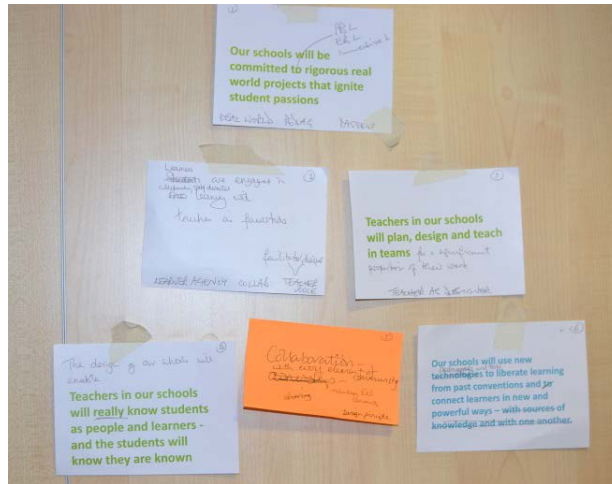 Our schools will be
committed to rigorous real
world projects that ignite
student passions
REAL WORLD
are engaged in
learning with
teacher as
LEARNER AGENCY COLLAB TEACHER
ROLE
Teachers in our schools
will plan, design and teach
in teams for a significant
proportion of their work
TEACHER AS DESIGNER
The design of our schools will
enable
Teachers in our schools
will really know students
as people and learners -
and the students will
know they are known
Collaboration -
with every element of
community
sharing
Design principle
Our schools will use new
technologies to liberate learning
from past conventions and to
connect learners in new and
powerful ways – with sources of
knowledge and with one another.